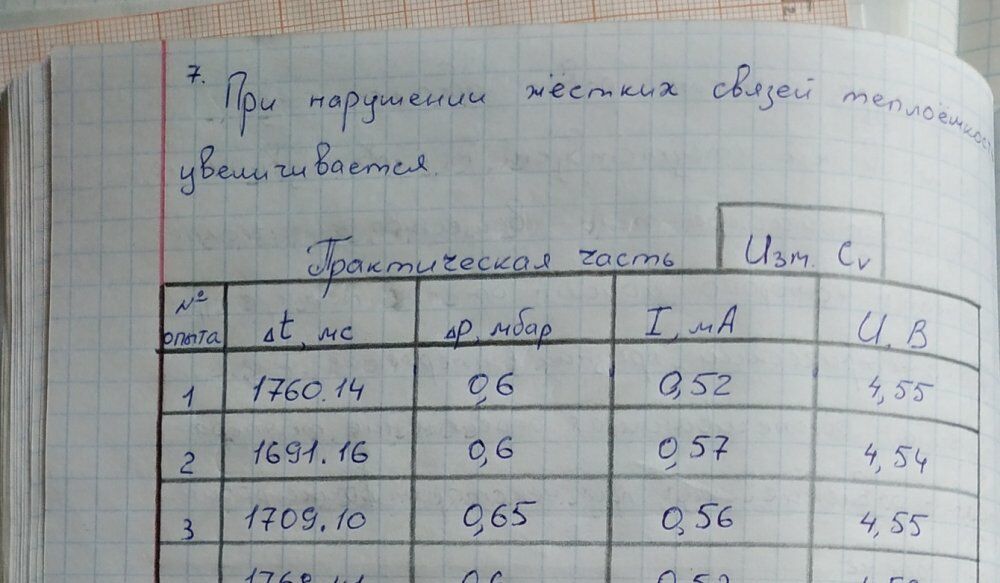 7.
При нарушении жёстких связей теплоёмкость
увеличивается.
Практическая часть
Изм. Cv
№ опыта Δt, мс Δp, мбар I, мА U, В
1 1760.14 0,6 0,52 4,55
2 1691.16 0,6 0,57 4,54
3 1709.10 0,65 0,56 4,55